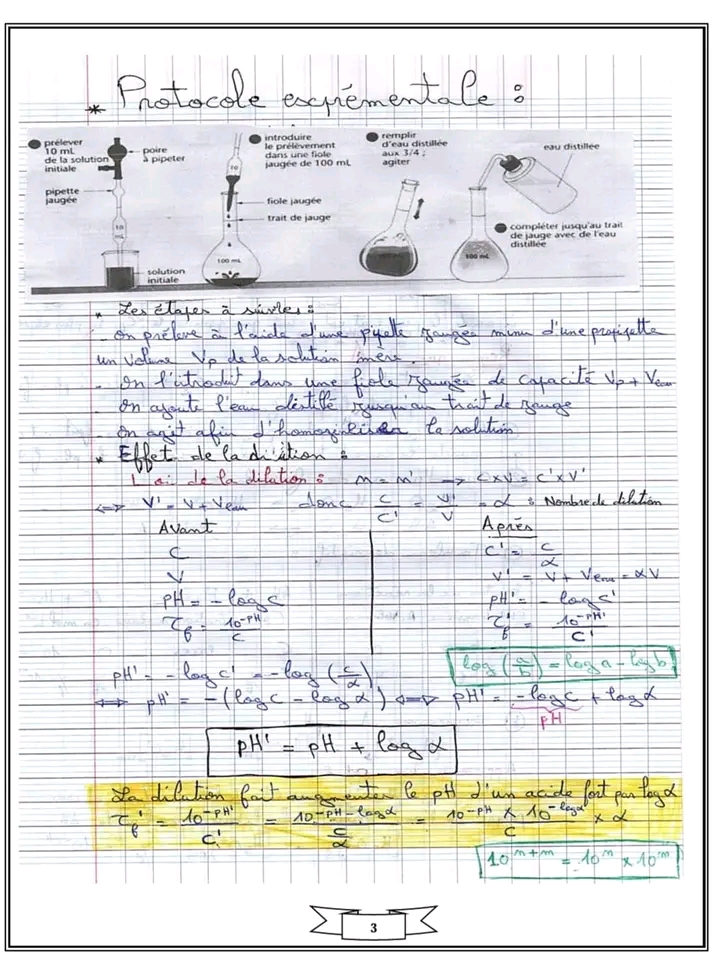 * Protocole exprémentale :
prélever
10 mL
de la solution
initiale
poire
à pipeter
pipette
jaugée
10
mL
solution
initiale
introduire
le prélèvement
dans une fiole
jaugée de 100 mL
10
fiole jaugée
trait de jauge
100 mL
remplir
d'eau distillée
aux 3/4 ;
agiter
eau distillée
100 mL
compléter jusqu'au trait
de jauge avec de l'eau
distillée
* Les étapes à suivres :
- On préléve à l'aide d'une pipette jaugée minu d'une propipette
un volume Vp de la solution mère.
- On l'itroduit dans une fiole jaugée de capacité Vp + Veau
- On ajoute l'eau distillé jusqu'au trait de jauge
- On agit afin d'homogénéiser la solution
* Effet de la dilution :
Loi de la dilution : n = n' → C×V = C'×V'
⟺ V' = V + Veau donc C/C' = V'/V = α : Nombre de dilution
Avant
C
V
pH = - log c
τf = 10^-pH / C
Après
C' = C/α
V' = V + Veau = αV
pH' = - log c'
τ'f = 10^-pH' / C'
log (a/b) = log a - log b
pH' = - log c' = - log (c/α)
⟺ pH' = - (log c - log α) ⟺ pH' = - log c + log α
pH
pH' = pH + log α
La dilution fait augmenter le pH d'un acide fort par log α
τ'f = 10^-pH' / C' = 10^-pH - log α / (C/α) = 10^-pH × 10^-log α / C × α
10^n+m = 10^n × 10^m
3